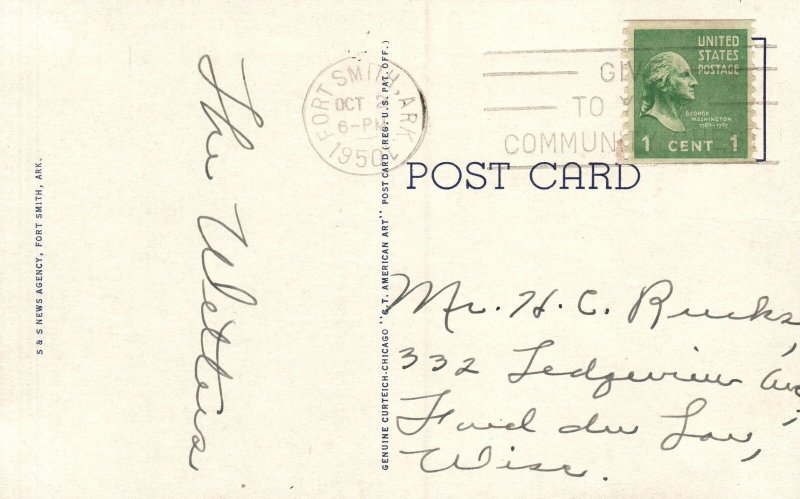 S & S NEWS AGENCY, FORT SMITH, ARK.
The Welters.
GENUINE CURTEICH-CHICAGO "C.T. AMERICAN ART" POST CARD (REG. U.S. PAT. OFF.)
FORT SMITH, ARK.
OCT 2
6-PM
1950
GIV
TO Y
COMMUN
UNITED
STATES
POSTAGE
GEORGE
WASHINGTON
1789-1797
1 CENT 1
POST CARD
Mr. H. C. Rucks,
332 Ledgeview Ave,
Fond du Lac,
Wisc.